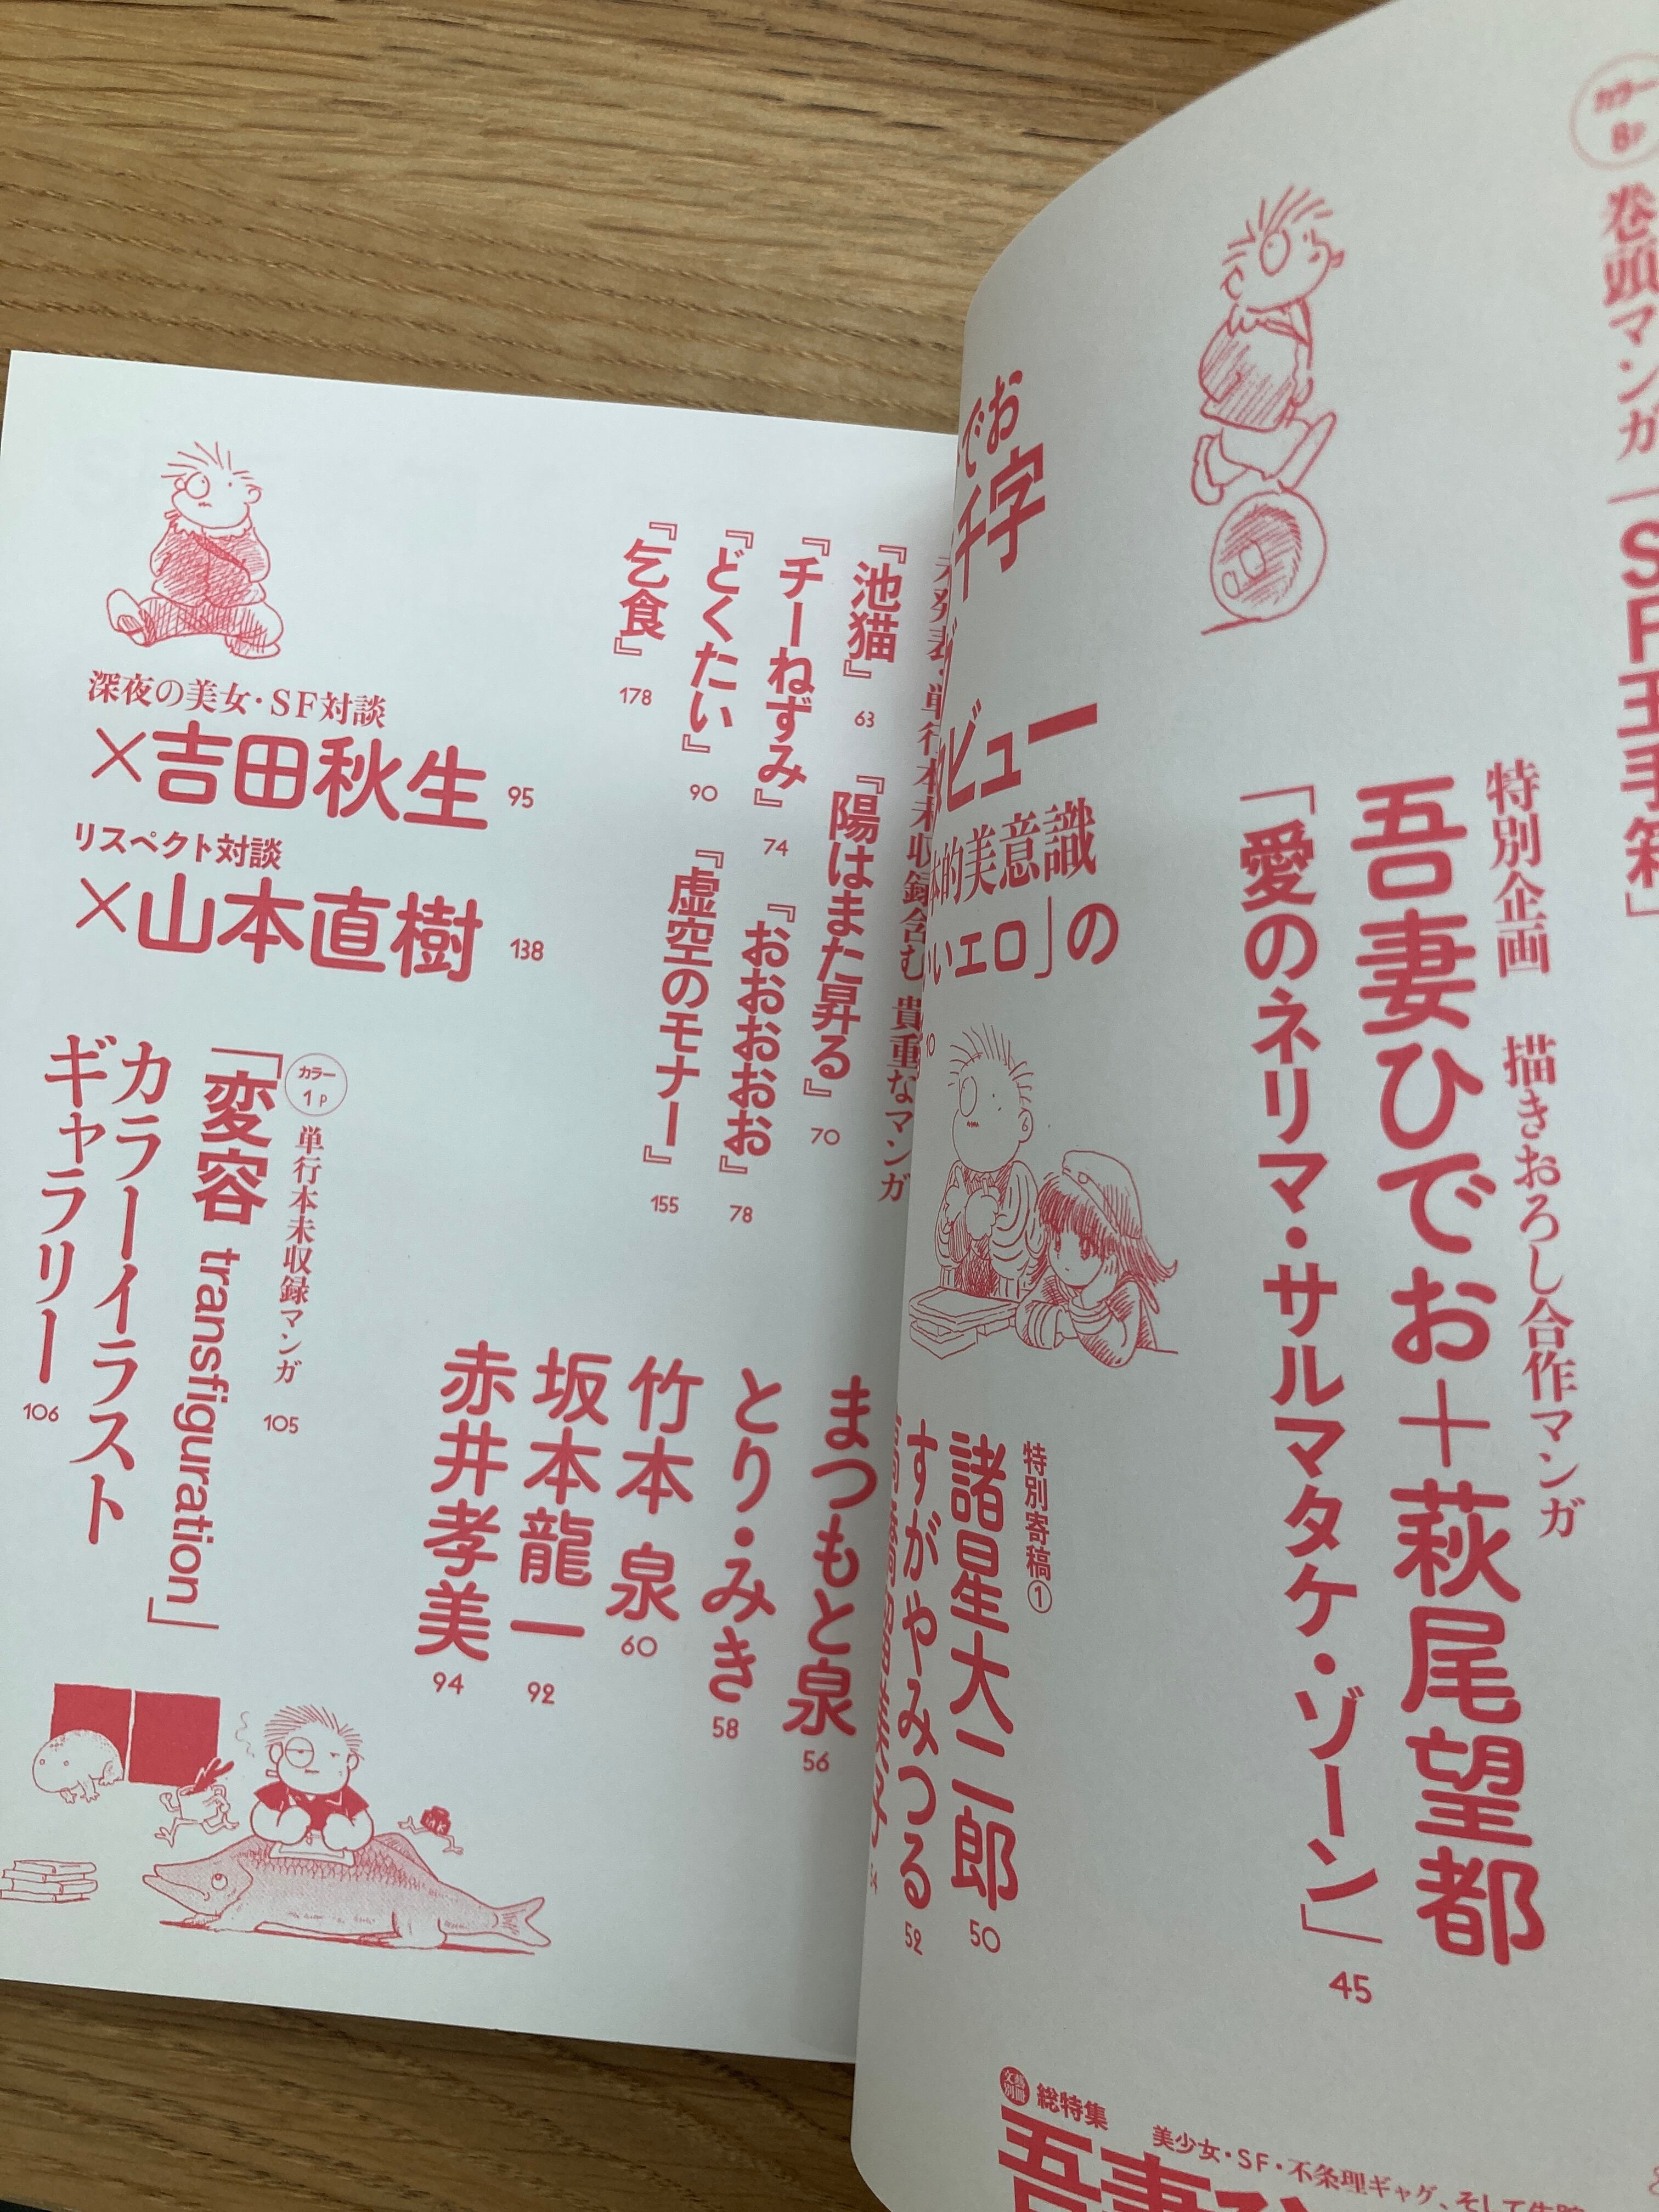 カラー
8P
巻頭マンガ「SF玉手箱」
特別企画 描きおろし合作マンガ
吾妻ひでお+萩尾望都
「愛のネリマ・サルマタケ・ゾーン」
45
でお
千字
ビュー
的美意識
いエロ」の
10
特別寄稿①
諸星大二郎
50
すがやみつる
52
54
文藝別冊
総特集
美少女・SF・不条理ギャグ、そして失踪
吾妻ひ
単行本未収録含む 貴重なマンガ
『池猫』 63
『陽はまた昇る』 70
『チーねずみ』 74
『おおおおお』 78
『どくたい』 90
『虚空のモナー』 155
『乞食』 178
まつもと泉 56
とり・みき 58
竹本 泉 60
坂本龍一 92
赤井孝美 94
深夜の美女・SF対談
×吉田秋生 95
リスペクト対談
×山本直樹 138
カラー
1P
単行本未収録マンガ
「変容 transfiguration」
105
カラーイラスト
ギャラリー
106